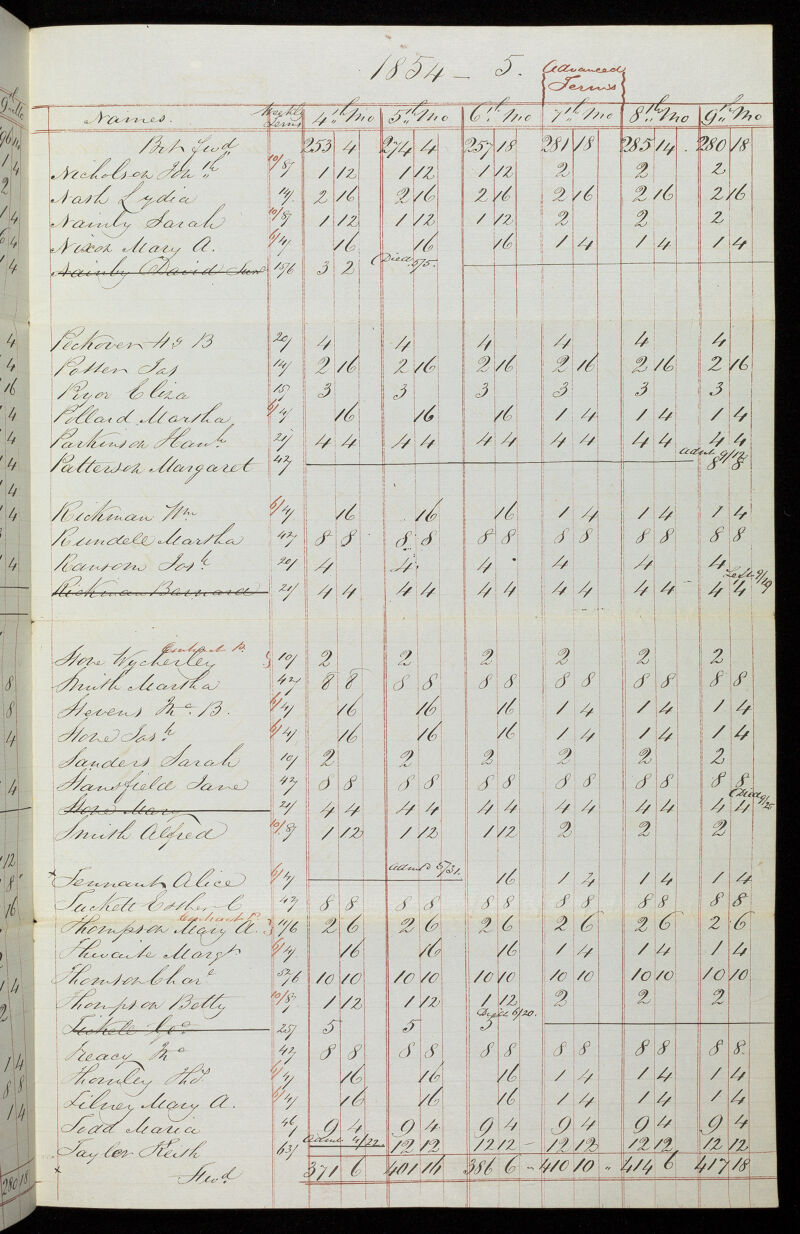 1854 – 5. Advanced Terms
Names. Weekly Terms 4th Mo 5th Mo 6th Mo 7th Mo 8th Mo 9th Mo
Bot fwd 253 4 274 4 257 18 281 18 285 14 280 18
Nicholson Jonh 10/8/ 1 12 1 12 1 12 2 2 2
Nash Lydia 14/ 2 16 2 16 2 16 2 16 2 16 2 16
Nainby Sarah 10/8/ 1 12 1 12 1 12 2 2 2
Nixon Mary A. 6/4/ 16 16 16 1 4 1 4 1 4
Nainby David 15/6 3 2 Died 5/5.
Peckover 20/ 4 4 4 4 4 4
Potter Jas 14/ 2 16 2 16 2 16 2 16 2 16 2 16
Pyor Eliza 15/ 3 3 3 3 3 3
Pollard Martha 6/4/ 16 16 16 1 4 1 4 1 4
Parkinson Hanh 21/ 4 4 4 4 4 4 4 4 4 4 4 4
Patterson Margaret 42/ admtd 9/12 8 8
Rickman Wm 6/4/ 16 16 16 1 4 1 4 1 4
Rundell Martha 42/ 8 8 8 8 8 8 8 8 8 8 8 8
Ransom Josh 20/ 4 4 4 4 4 4
Rickman Barnard 21/ 4 4 4 4 4 4 4 4 4 4 4 4 Left 9/19
Stone Wycherley 10/ 2 2 2 2 2 2
Smith Martha 42/ 8 8 8 8 8 8 8 8 8 8 8 8
Stevens B. 6/4/ 16 16 16 1 4 1 4 1 4
Stone Josh 6/4/ 16 16 16 1 4 1 4 1 4
Sanders Sarah 10/ 2 2 2 2 2 2
Stansfield Jane 42/ 8 8 8 8 8 8 8 8 8 8 8 8
Stone Mary 21/ 4 4 4 4 4 4 4 4 4 4 4 4 Died 9/25
Smith Alfred 10/8/ 1 12 1 12 1 12 2 2 2
x Tennant Alice 6/4/ admtd 5/31. 16 1 4 1 4 1 4
Tuckett Esther C 42/ 8 8 8 8 8 8 8 8 8 8 8 8
Thompson Mary A. 7/6 2 6 2 6 2 6 2 6 2 6 2 6
Thwaite Margt 6/4/ 16 16 16 1 4 1 4 1 4
Thomson Chare 52/6 10 10 10 10 10 10 10 10 10 10 10 10
Thompson Betty 10/8/ 1 12 1 12 1 12 2 2 2
Tuckett 25/ 5 5 5 Died 6/20.
Treacy 42/ 8 8 8 8 8 8 8 8 8 8 8 8
Thornley Thos 6/4/ 16 16 16 1 4 1 4 1 4
Tilney Mary A. 6/4/ 16 16 16 1 4 1 4 1 4
Todd Maria 46/ 9 4 9 4 9 4 9 4 9 4 9 4
Taylor 63/ Admtd 4/22. 12 12 12 12 12 12 12 12 12 12
x Fwd 371 6 401 14 386 6 410 10 414 6 417 18
280 18